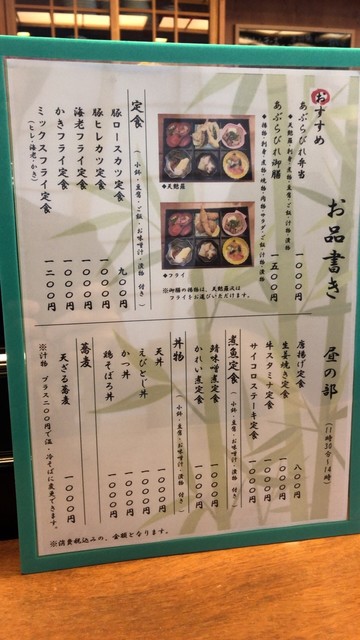 お品書き 昼の部 (11時30分〜14時)
おすすめ
あぶらびれ弁当 一〇〇〇円
◆天麩羅・刺身・煮物・ご飯・汁物・漬物
あぶらびれ御膳 一五〇〇円
◆揚物・刺身・煮物・焼物・肉物・サラダ・ご飯・汁物・漬物
◆天麩羅
◆フライ
※御膳の揚物は、天麩羅又は
フライをお選びいただけます。
定食 (小鉢・豆腐・ご飯・お味噌汁・漬物 付き)
豚ロースカツ定食 九〇〇円
豚ヒレカツ定食 一〇〇〇円
海老フライ定食 一〇〇〇円
かきフライ定食 一〇〇〇円
ミックスフライ定食 一二〇〇円
(ヒレ・海老・かき)
唐揚げ定食 八〇〇円
生姜焼き定食 一〇〇〇円
牛スタミナ定食 一〇〇〇円
サイコロステーキ定食 一〇〇〇円
煮魚定食 (小鉢・豆腐・ご飯・お味噌汁・漬物 付き)
鯖味噌煮定食 一〇〇〇円
かれい煮定食 一〇〇〇円
丼物 (小鉢・豆腐・お味噌汁・漬物 付き)
天丼 一〇〇〇円
えびとじ丼 一〇〇〇円
かつ丼 一〇〇〇円
鶏そぼろ丼 一〇〇〇円
蕎麦
天ざる蕎麦 一〇〇〇円
※汁物 プラス二〇〇円で温・冷そばに変更できます。
※消費税込みの、金額となります。